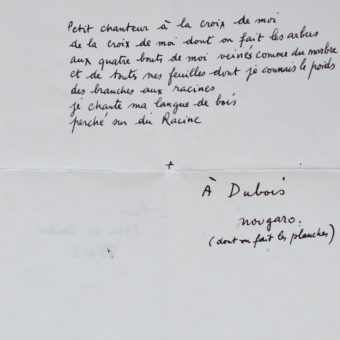 Petit chanteur à la croix de moi
de la croix de moi dont on fait les arbres
aux quatre bouts de moi veinés comme du marbre
et de toutes mes feuilles dont je connais le poids
des branches aux racines
je chante ma langue de bois
perché sur du Racine
+
À Dubois
nougaro.
(dont on fait les planches)